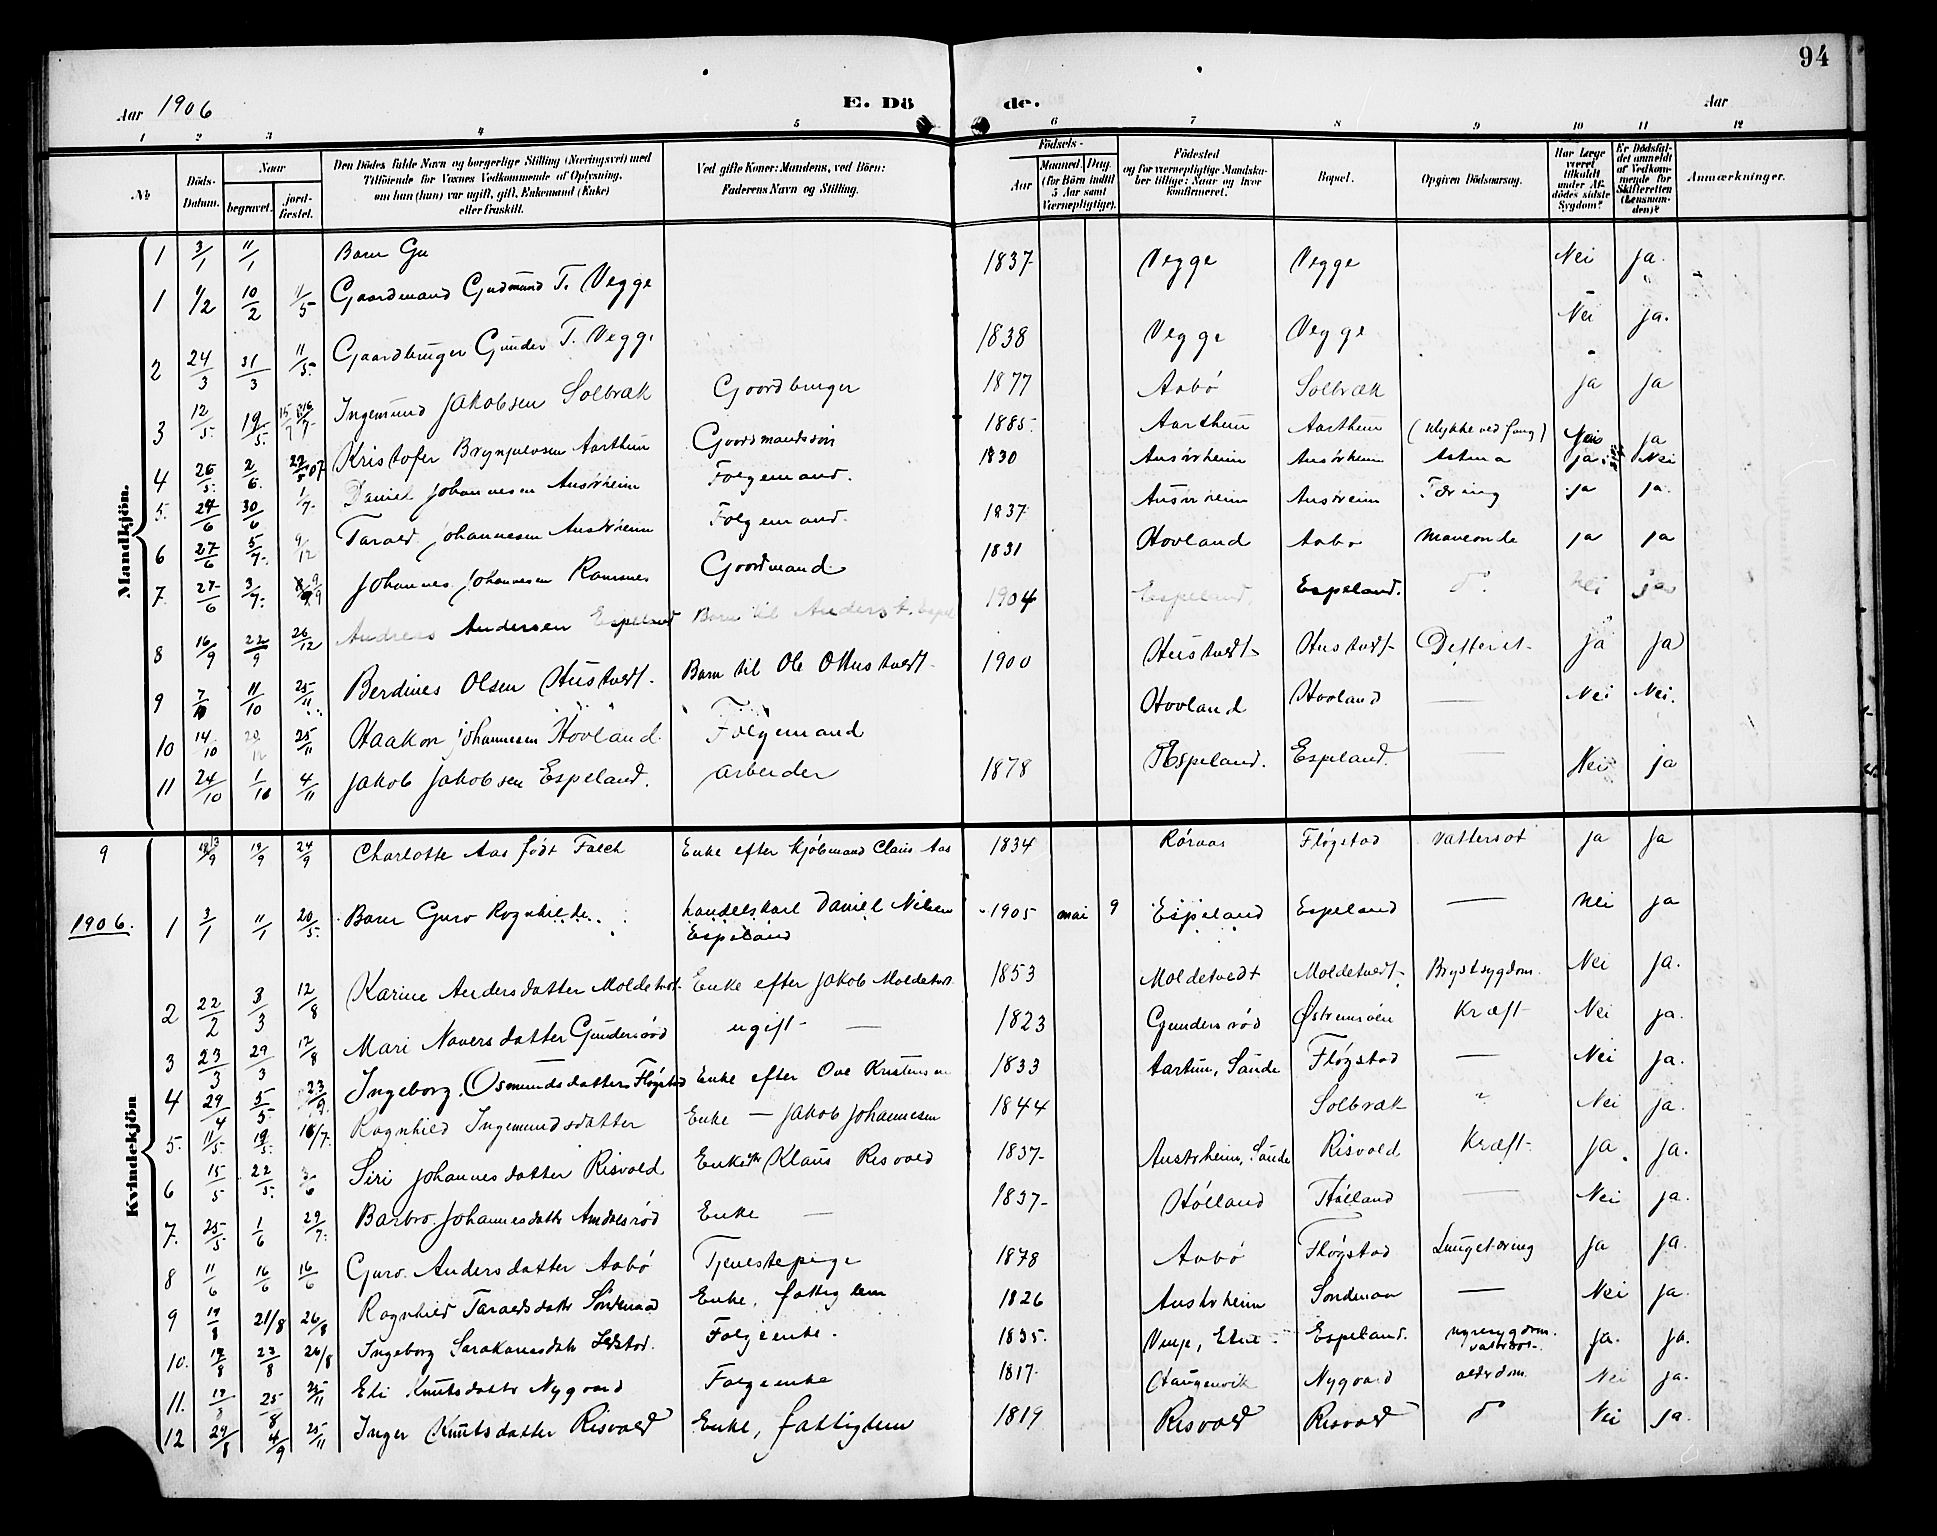 94
Aar 1906
E. Dö de.
Aar
1 2 3 4 5 6 7 8 9 10 11 12
No
Döds-Datum.
Naar
begravet.
jord-fæstet.
Den Dödes fulde Navn og borgerlige Stilling (Næringsvei) med
Tilföiende for Voxnes Vedkommende af Oplysning,
om han (hun) var ugift, gift, Enkemand (Enke)
eller fraskilt.
Ved gifte Koner: Mandens, ved Börn:
Faderens Navn og Stilling.
Födsels-
Aar
Maaned. Dag.
(for Börn indtil
5 Aar samt
Værnepligtige).
Födested
og for værnepligtige Mandska-
ber tillige: Naar og hvor
konfirmeret.
Bopæl.
Opgiven Dödsaarsag.
Har Læge
været
tilkaldt
under Af-
dödes sidste
Sygdom?
Er Dödsfal-
det anmeldt
af Vedkom-
mende for
Skifteretten
(Lensman-
den)?
Anmærkninger.
Mandkjön.
1 3/1 11/1 Barn Gu 1837 Vegge Vegge Nei ja.
1 1/2 10/2 11/5 Gaardmand Gudmund T. Vegge
2 24/3 31/3 11/5. Gaardbruger Gunder T. Vegge 1838 Vegge Vegge Nei ja.
3 12/5. 19/5. Ingemund Jakobsen Solbræk Goordbruger 1877 Aabø Solbræk ja ja
4 26/5. 2/6. 07 Kristofer Brynjulvsen Aarthun Goordmandssøn 1885 Aarthun Aarthun (Ulykke ved fang) Nei ja
5. 24/6 30/6 1/7. Daniel Johannesen Folgemand. 1830 Astma ja Nei
6 27/6 5/7. 9/12 Tarald Johannesen Folgemand. 1837 Tæring ja ja.
7. 27/6 3/7. Johannes Johannesen Ramsnes Goordmand 1831 Hovland Aabø ja ja
8 16/9 22/9 26/12 Andreas Andersen Espeland Barn til Anders 1904 Espeland. Espeland. Nei ja
9 7/10 11/10 25/11 Berdines Olsen Hustvedt. Barn til Ole O Hustvedt. 1900 Hustvedt Hustvedt Difterit. ja ja
10 14/10 25/11 Haakon Johannesen Hovland Folgemand Hovland Hovland — Nei Nei.
11 24/10 1/10 4/11 Jakob Jakobsen Espeland. arbeider 1878 Espeland. Espeland. — Nei ja
Kvindekjön
9 19/9 24/9 Charlotte Aas født Falch Enke efter Kjøbmand Claus Aas 1834 Røraas Fløgstad Vattersot ja ja
1906. 1 3/1 11/1 20/5. Barn Guro Rognhilde. handelskarl Daniel Nilsen
Espeland 1905 mai 9 Espeland Espeland — Nei ja
2 22/2 3/3 12/8 Karine Andersdatter Moldetvdt. Enke efter Jakob Moldetvdt. 1853 Moldetvedt Moldetvedt Brystsygdom. Nei ja.
3 23/3 29/3 12/8 Mari Naversdatter Gundersrød ugift — 1823 Gundersrød Kræft Nei ja.
4 29/4 5/5 23/9. Ingeborg Osmundsdatter Fløgstad Enke efter Ove Kristensen 1833 Aartun, Sande Fløgstad — Nei ja.
5. 11/5. 19/5. Rognhild Ingemundsdatter Enke — Jakob Johannesen 1844 Solbræk " Nei ja.
6 15/5 22/5. 3/6 Siri Johannesdatter Risvold Enke Klaus Risvold 1837 Austrheim, Sande Risvold Kræft. ja. ja.
7. 25/5. 1/6 29/7. Barbro Johannesdatr Amdalsrød Enke — 1837 Hølland Hølland — Nei ja.
8 11/6 16/6 16/6 Guro Andersdatter Aabø Tjenestepige 1878 Aabø Fløgstad Lungetæring ja ja.
9 19/8 21/8 26/8 Rognhild Taraldsdatr Søndenaa Enke, fattiglem 1826 Austrheim Søndenaa — Nei ja.
10. 19/8 23/8 26/8 Ingeborg Folgeenke. 1835. Espeland. Nyresygdom. ja. ja.
11. 19/8 25/8 25/11 Eli Knutsdatr Nygaard Folgeenke 1817 Haugenvik Nygaard alderdom. Nei ja.
12 29/8 4/9 25/11 Inger Knutsdatter Risvold Enke, fattiglem 1819 Risvold Risvold do Nei ja.